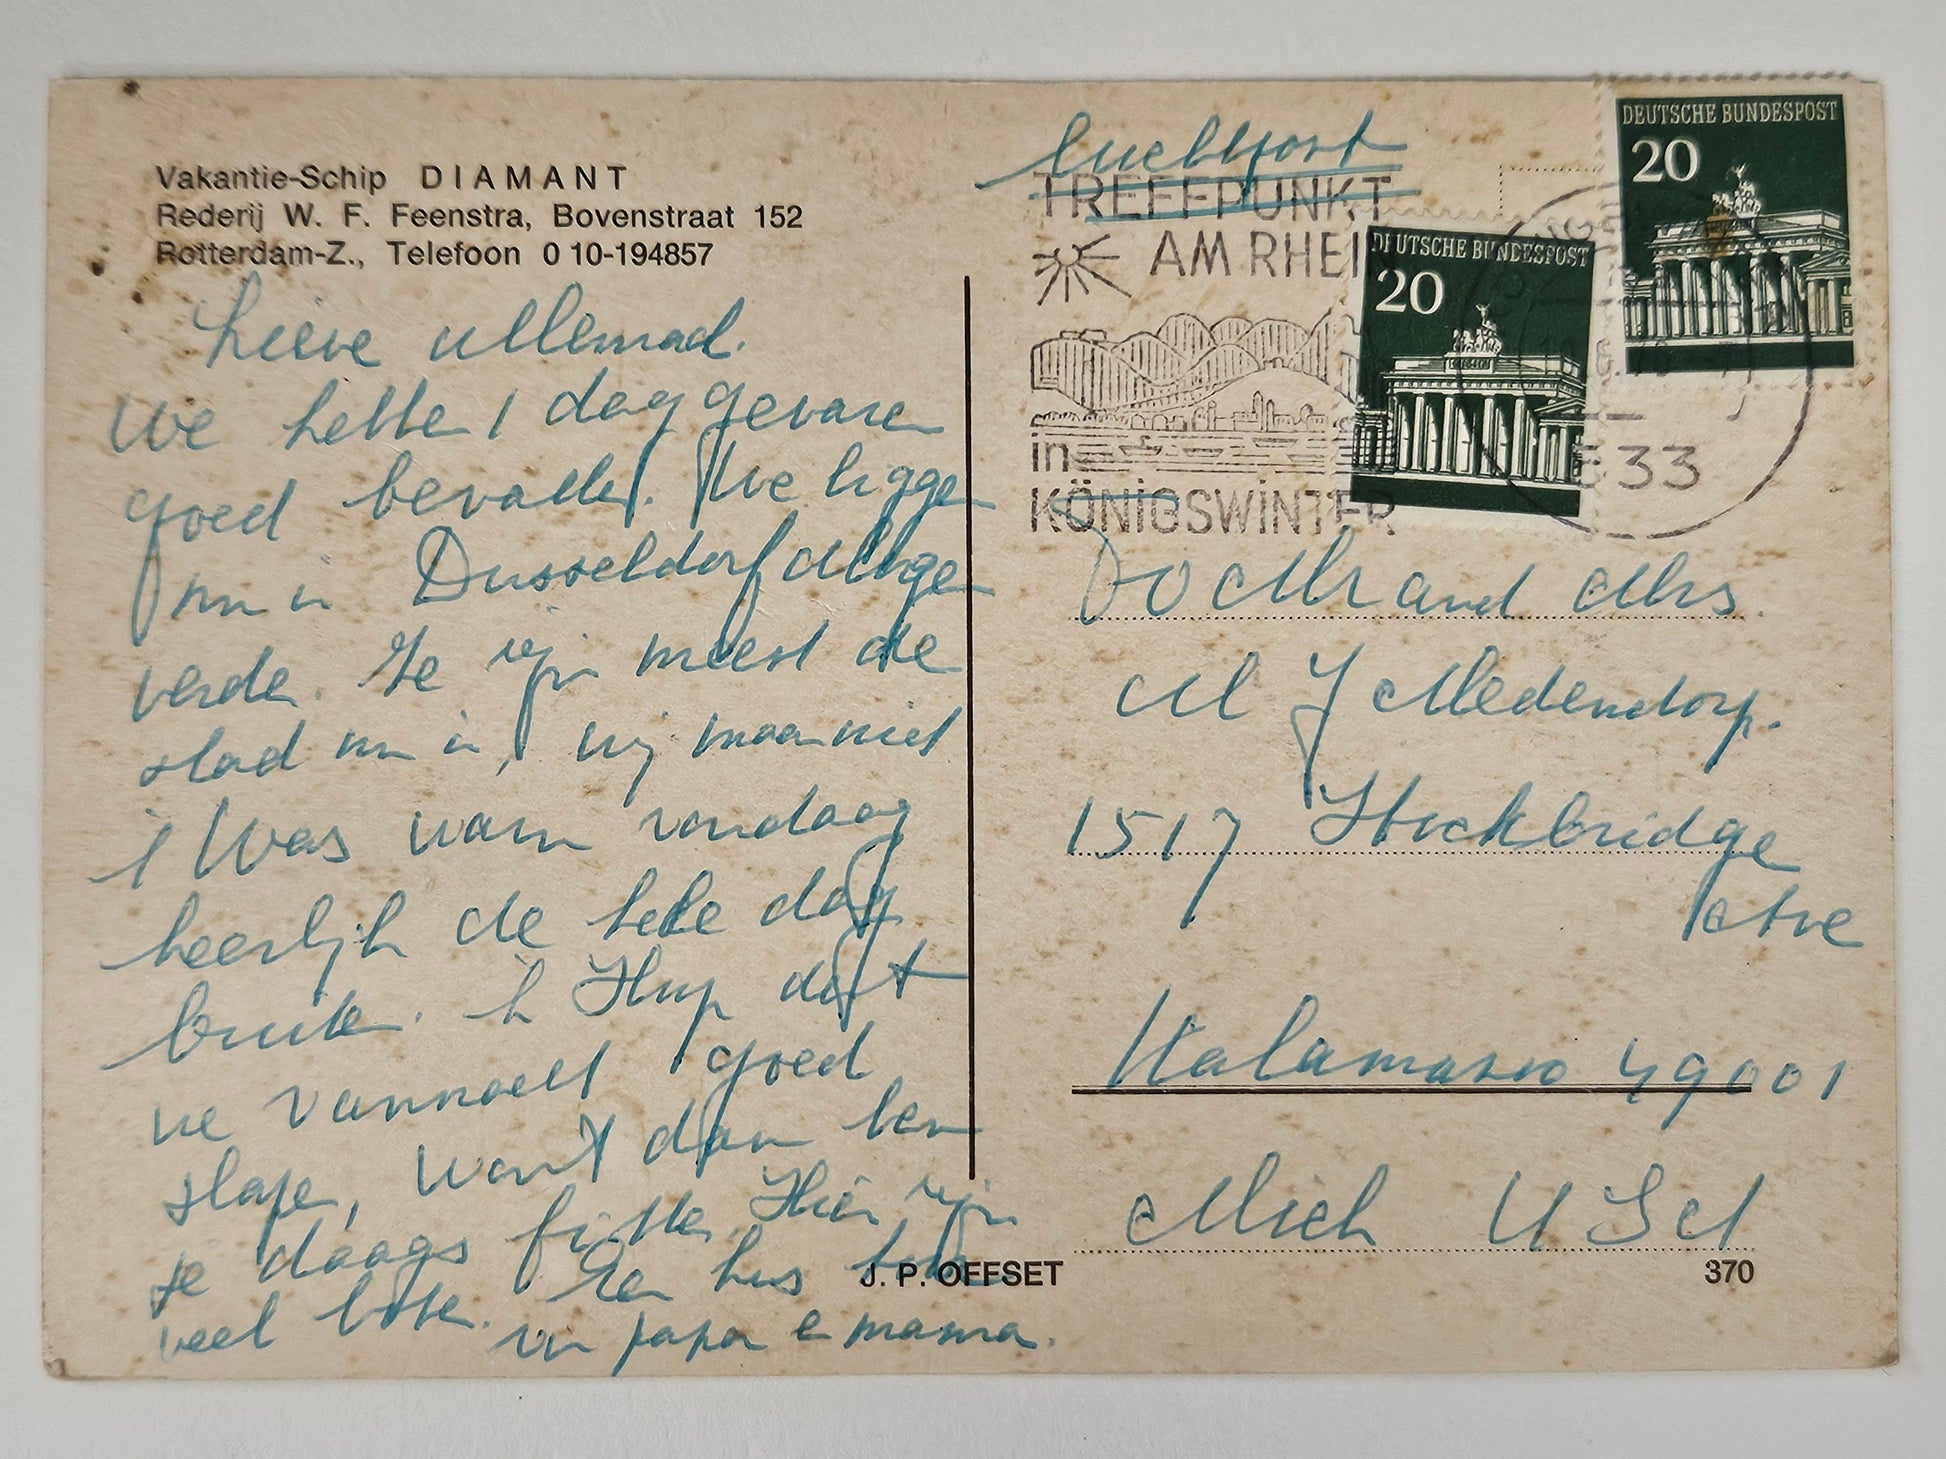 Vakantie-Schip DIAMANT
Rederij W. F. Feenstra, Bovenstraat 152
Rotterdam-Z., Telefoon 0 10-194857
Lieve allemaal.
We hebben 1 dag gevaren
goed bevallen. We liggen
nu in Dusseldorf
verder. Ze zijn meest de
stad nu in, wij maar niet
't Was warm vandaag
heerlijk de hele dag
buiten. ik Hup dat
we vannacht goed
slapen, want dan ben
je daags fitter Hier zijn
veel boten. Een kus
van papa en mama.
Luchtpost
TREFFPUNKT
AM RHEIN
in
KÖNIGSWINTER
533
DEUTSCHE BUNDESPOST
20
DEUTSCHE BUNDESPOST
20
To Mr and Mrs.
M J Medendorp.
1517 Stockbridge
Ave
Kalamazoo 49001
Mich USA
J. P. OFFSET
370